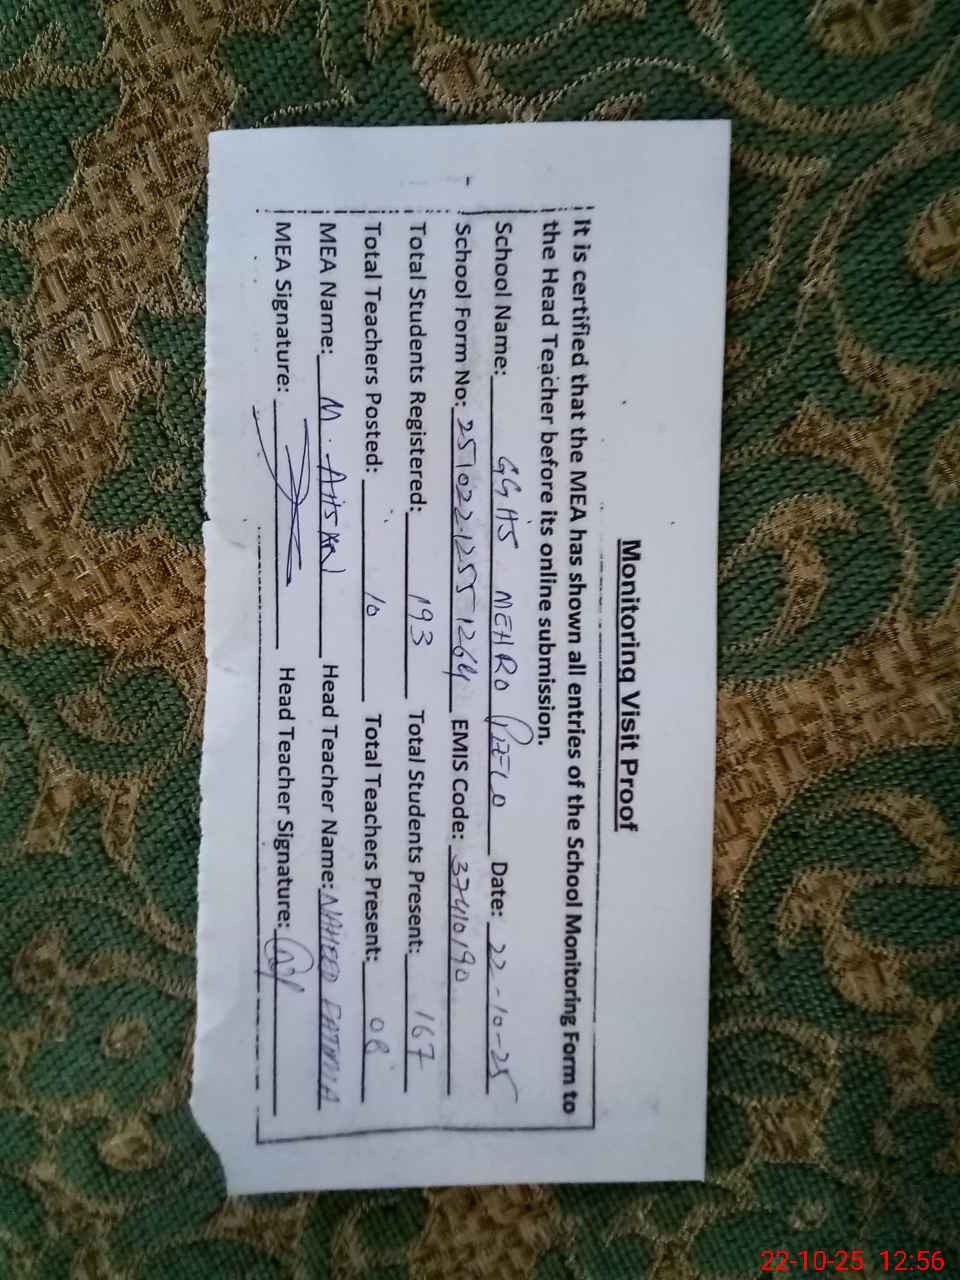 Monitoring Visit Proof
It is certified that the MEA has shown all entries of the School Monitoring Form to
the Head Teacher before its online submission.
School Name: GGHS NEHRO Date: 22-10-25
School Form No: 25102212551264 EMIS Code: 37410190
Total Students Registered: 193 Total Students Present: 167
Total Teachers Posted: 10 Total Teachers Present: 08
MEA Name: M. AHSAN Head Teacher Name: NAHEED FATIMA
MEA Signature: Head Teacher Signature:
22-10-25 12:56